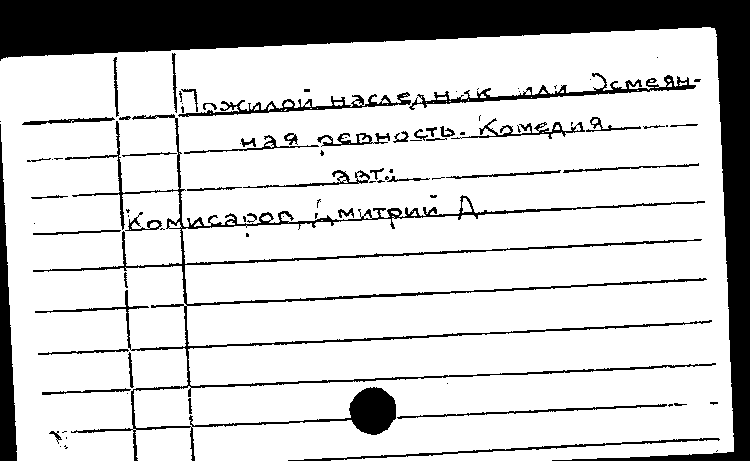 Пожилой наследник или Осмеян-
ная ревность. Комедия.
авт.:
Комисаров, Дмитрий Д.